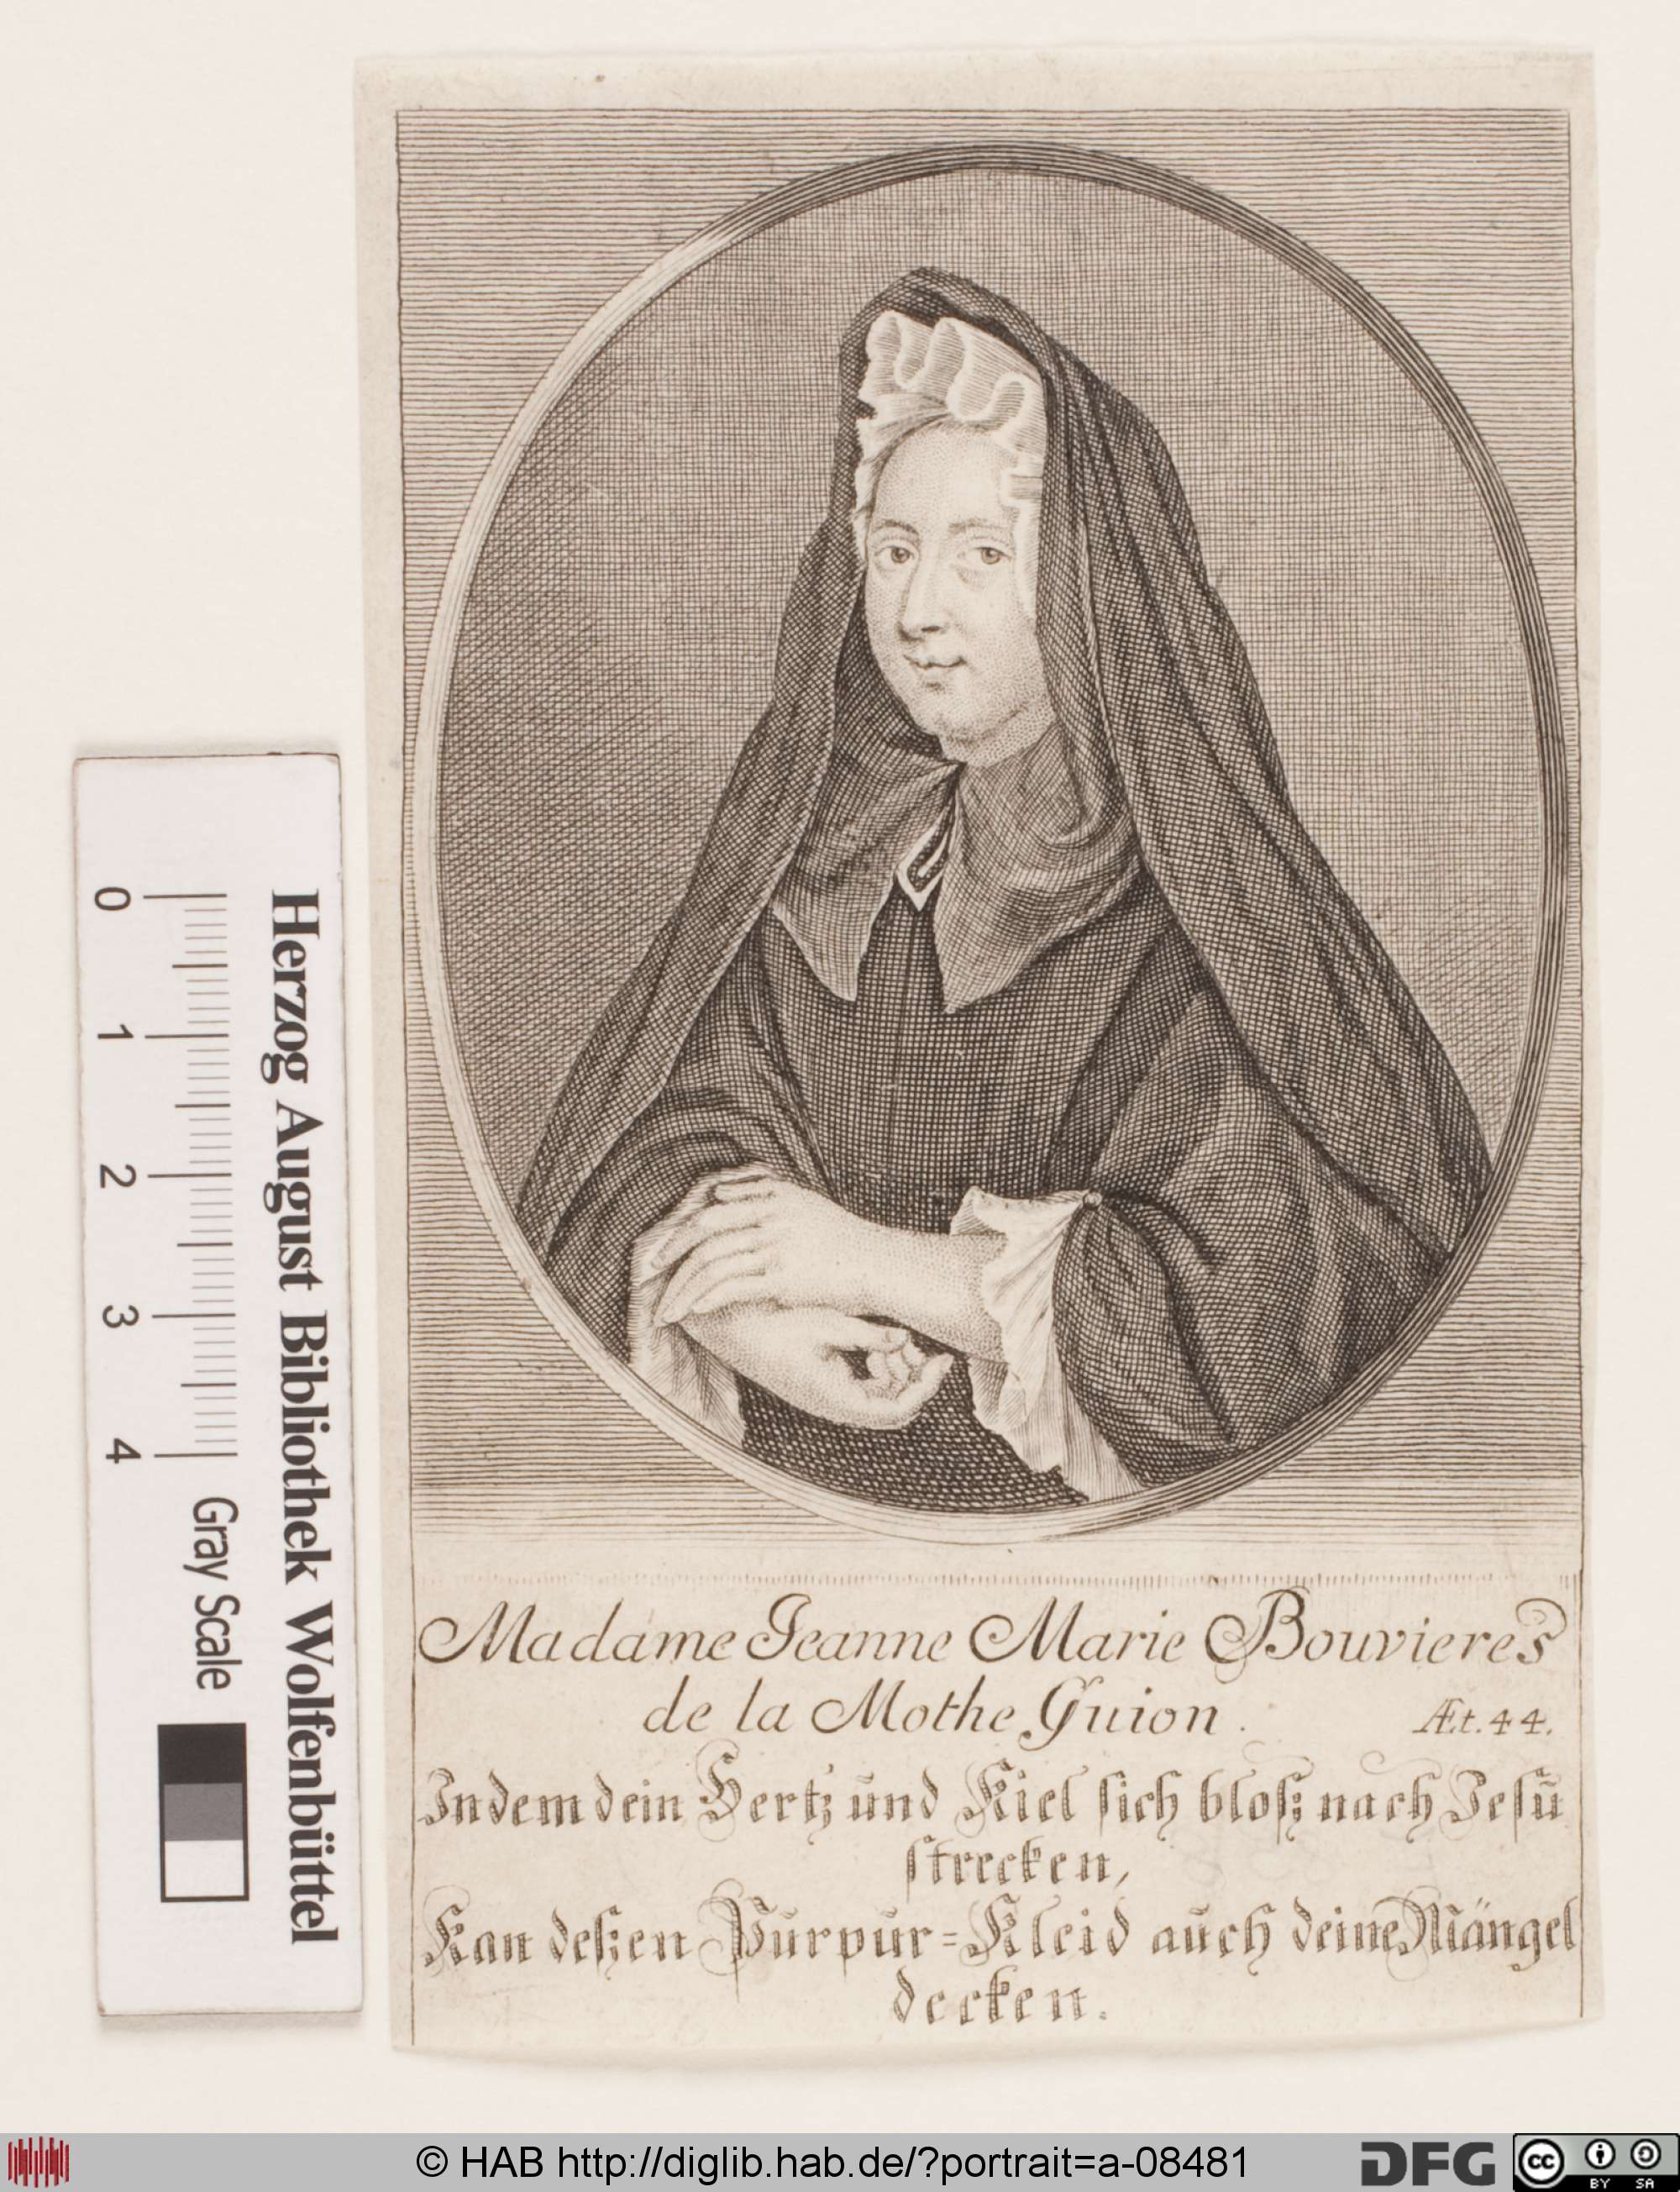 Madame Jeanne Marie Bouvieres
de la Mothe Guion. Æt. 44.
Indem dein Hertz und Kiel sich bloß nach Jesu
strecken,
Kan deßen Purpur=Kleid auch deine Mängel
decken.
Herzog August Bibliothek Wolfenbüttel
0 1 2 3 4 Gray Scale
© HAB http://diglib.hab.de/?portrait=a-08481
DFG
cc BY SA